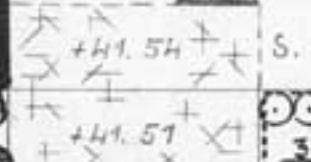 +41.54 S.
+41.51
3